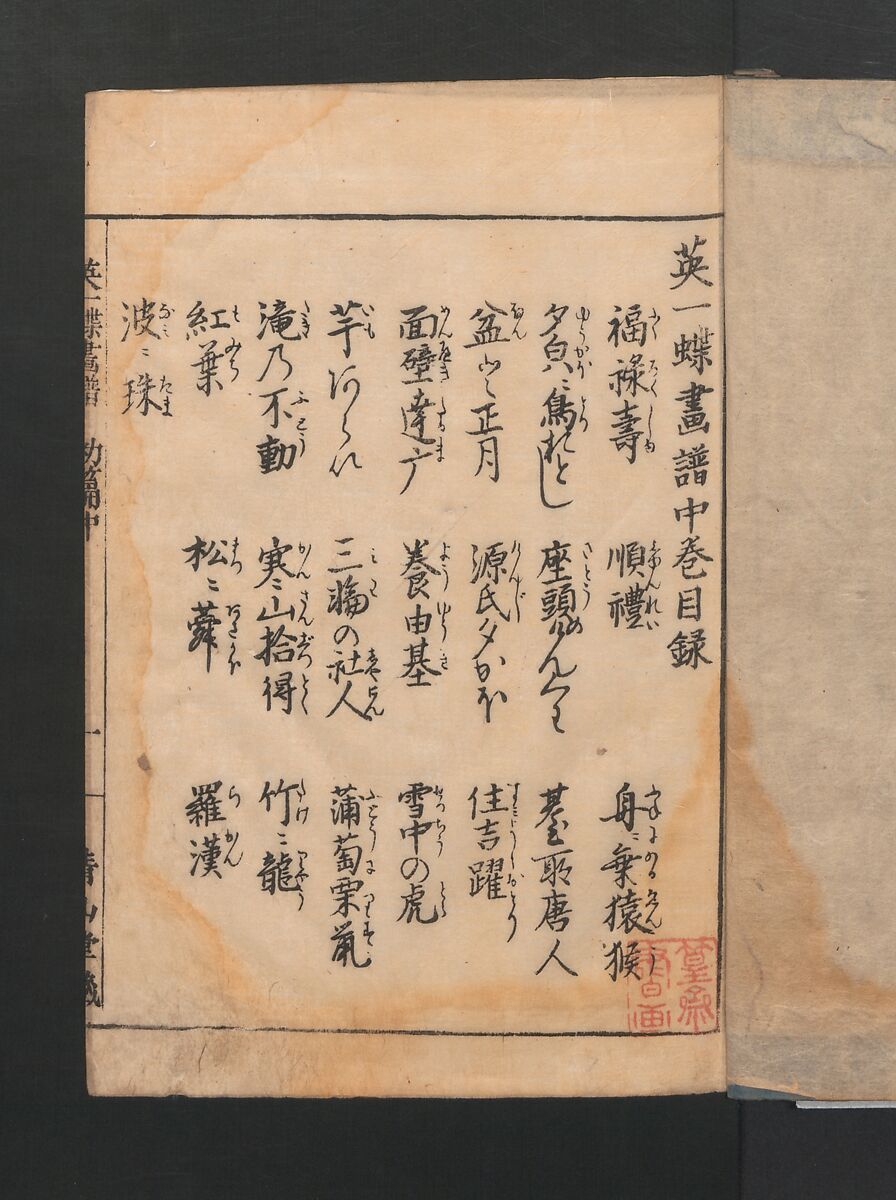 英一蝶畫譜中巻目録
福禄壽 順禮 舟ニ乗猿猴
夕皃ニ鳥おどし 座頭 碁 唐人
盆と正月 源氏夕かほ 住吉躍
面壁達广 養由基 雪中の虎
芋あらい 三輪の社人 蒲萄栗鼠
滝乃不動 寒山拾得 竹ニ龍
紅葉 松ニ蕣 羅漢
波ニ珠
英一蝶畫譜 初篇中 一 青山堂